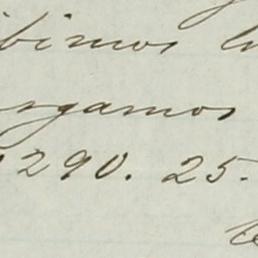 ibimos
rgamos
290. 25.